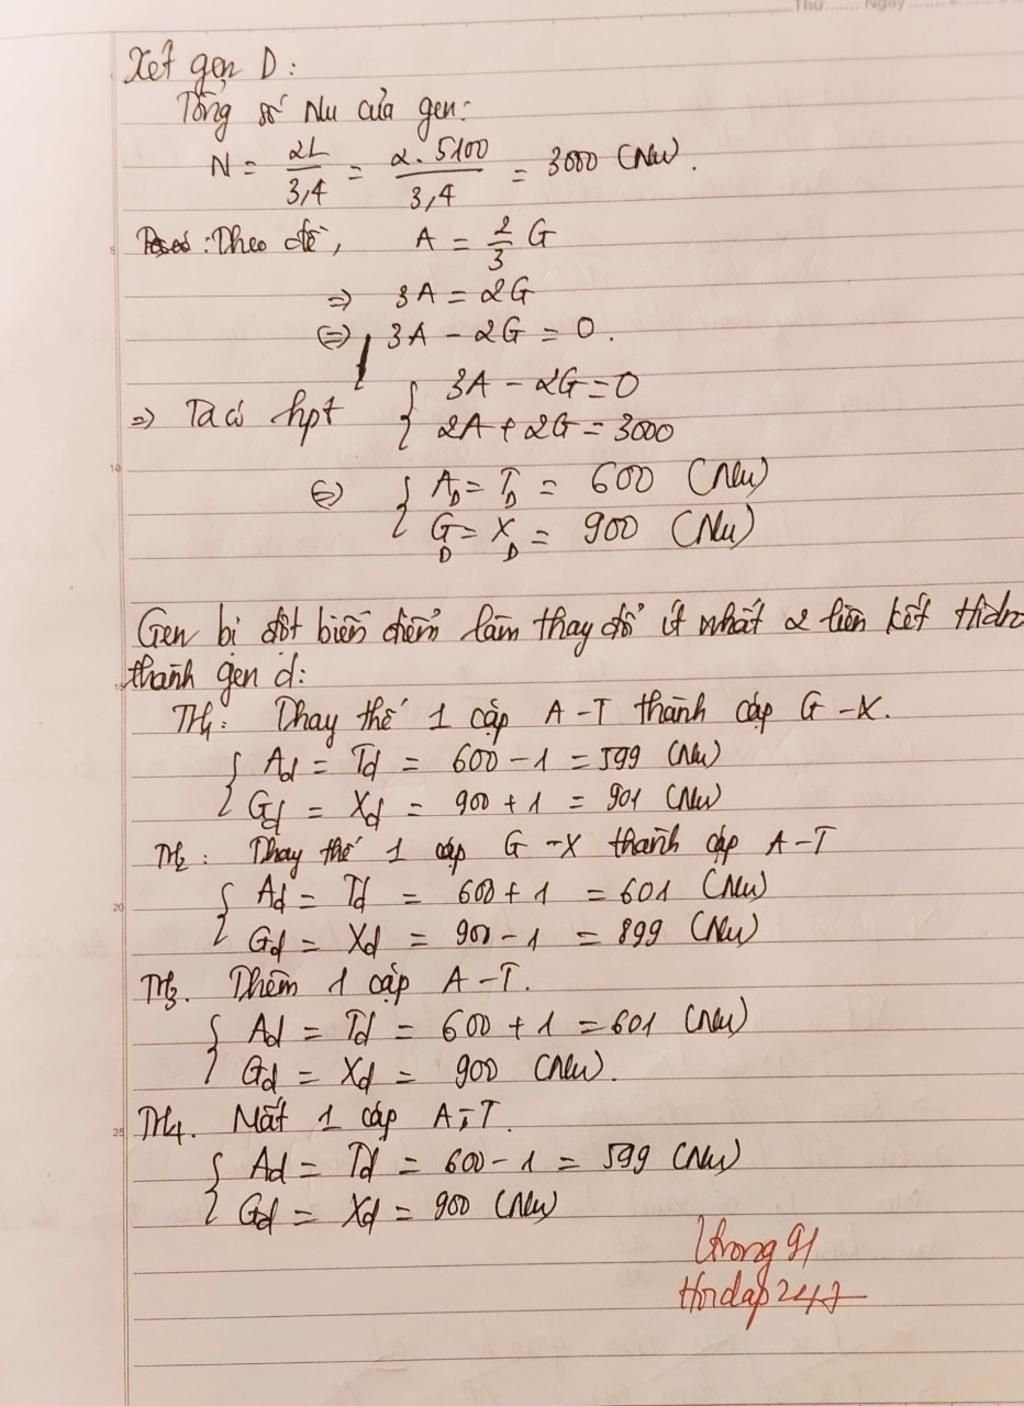 Thứ....... Ngày.......
Xét gen D:
Tổng số Nu của gen:
N = 2L/3,4 = 2.5100/3,4 = 3000 (Nu).
: Theo đề, A = 2/3 G
=> 3A = 2G
<=> 3A - 2G = 0.
=> Ta có hpt { 3A - 2G = 0
2A + 2G = 3000
<=> { A_D = T_D = 600 (Nu)
G_D = X_D = 900 (Nu)
Gen bị đột biến điểm làm thay đổi ít nhất 2 liên kết Hidro
thành gen d:
TH1: Thay thế 1 cặp A-T thành cặp G-X.
{ Ad = Td = 600 - 1 = 599 (Nu)
Gd = Xd = 900 + 1 = 901 (Nu)
TH2: Thay thế 1 cặp G-X thành cặp A-T
{ Ad = Td = 600 + 1 = 601 (Nu)
Gd = Xd = 900 - 1 = 899 (Nu)
TH3. Thêm 1 cặp A-T.
{ Ad = Td = 600 + 1 = 601 (Nu)
Gd = Xd = 900 (Nu).
TH4. Mất 1 cặp A-T.
{ Ad = Td = 600 - 1 = 599 (Nu)
Gd = Xd = 900 (Nu)
Hoidap247
5
10
15
20
25